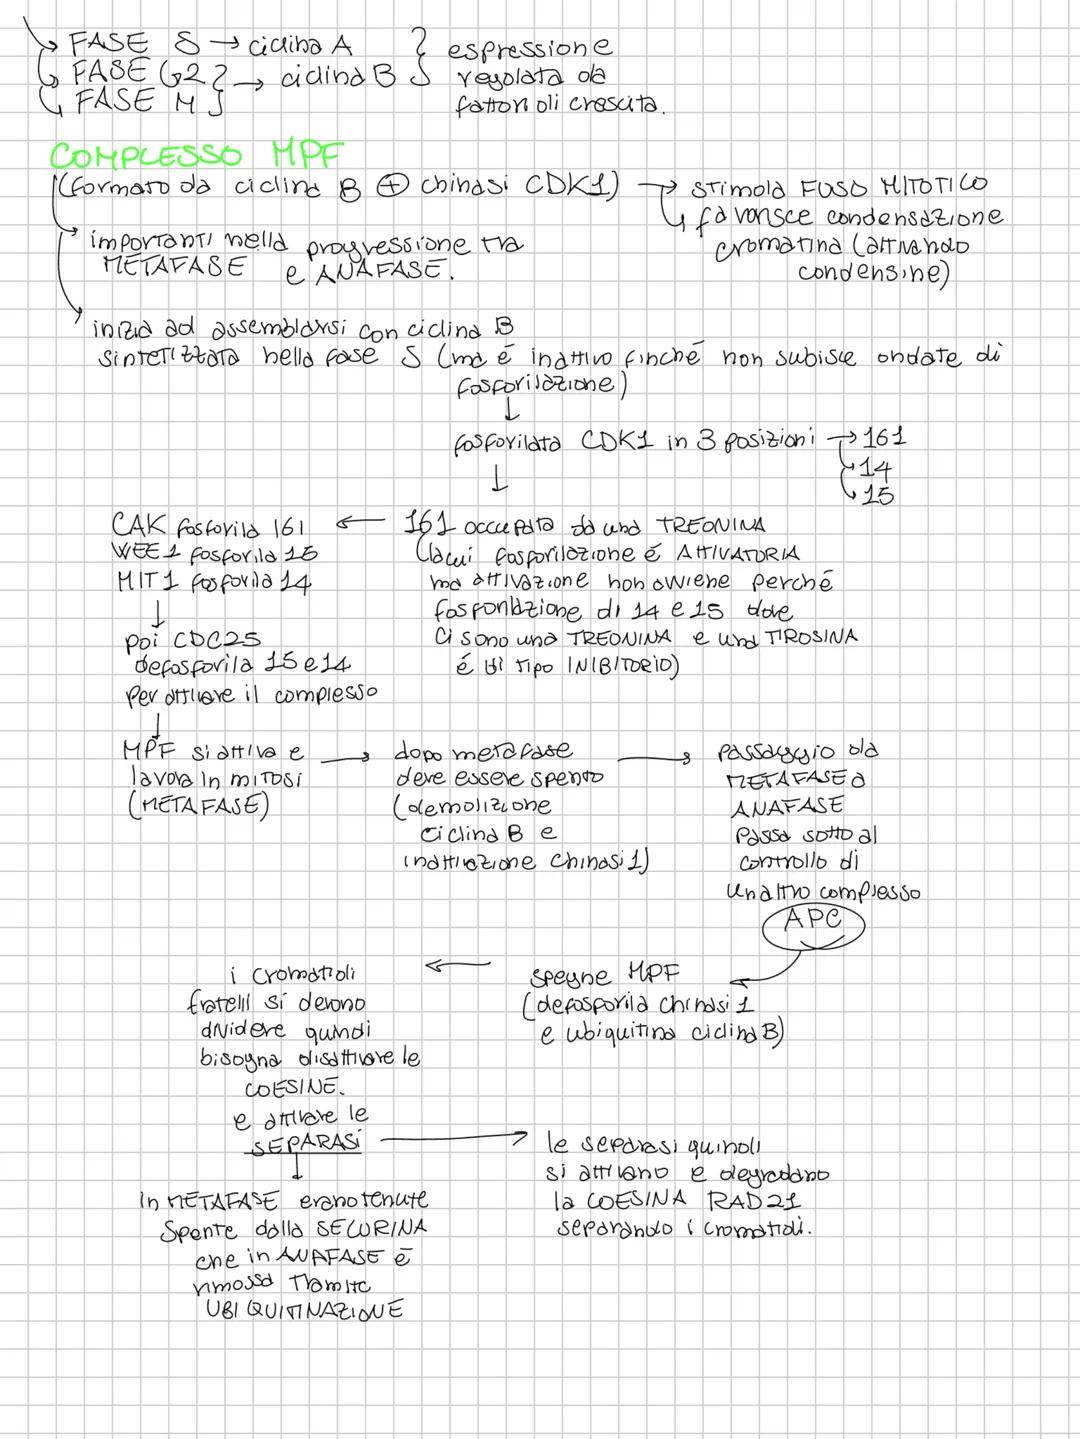 FASE S → ciclina A
FASE G2 → ciclina B
FASE M
espressione
regolata da
fattori di crescita.
COMPLESSO MPF
(formato da ciclina B + chinasi CDK1) → stimola FUSO MITOTICO
favorisce condensazione
cromatina (attivando
condensine)
importanti nella progressione tra
METAFASE e ANAFASE.
inizia ad assemblarsi con ciclina B
sintetizzata nella fase S (ma é inattivo finché non subisce ondate di
fosforilazione)
↓
fosforilata CDK1 in 3 posizioni → 161
14
15
↓
161 occupata da una TREONINA
(la cui fosforilazione é ATTIVATORIA
ma attivazione non avviene perché
fosforilazione di 14 e 15 dove
ci sono una TREONINA e una TIROSINA
é di tipo INIBITORIO)
CAK fosforila 161
WEE1 fosforila 15
MIT1 fosforila 14
↓
poi CDC25
defosforila 15 e 14
per attivare il complesso
↓
MPF si attiva e
lavora in mitosi
(METAFASE)
→ dopo metafase
deve essere spento
(demolizione
ciclina B e
inattivazione chinasi 1)
→ passaggio da
METAFASE a
ANAFASE
passa sotto al
controllo di
un altro complesso
APC
spegne MPF
(defosforila chinasi 1
e ubiquitina ciclina B)
← i cromatidi
fratelli si devono
dividere quindi
bisogna disattivare le
COESINE.
e attivare le
SEPARASI
↓
in METAFASE erano tenute
spente dalla SECURINA
che in ANAFASE é
rimossa tramite
UBIQUITINAZIONE
→ le separasi quindi
si attivano e degradano
la COESINA RAD21
separando i cromatidi.